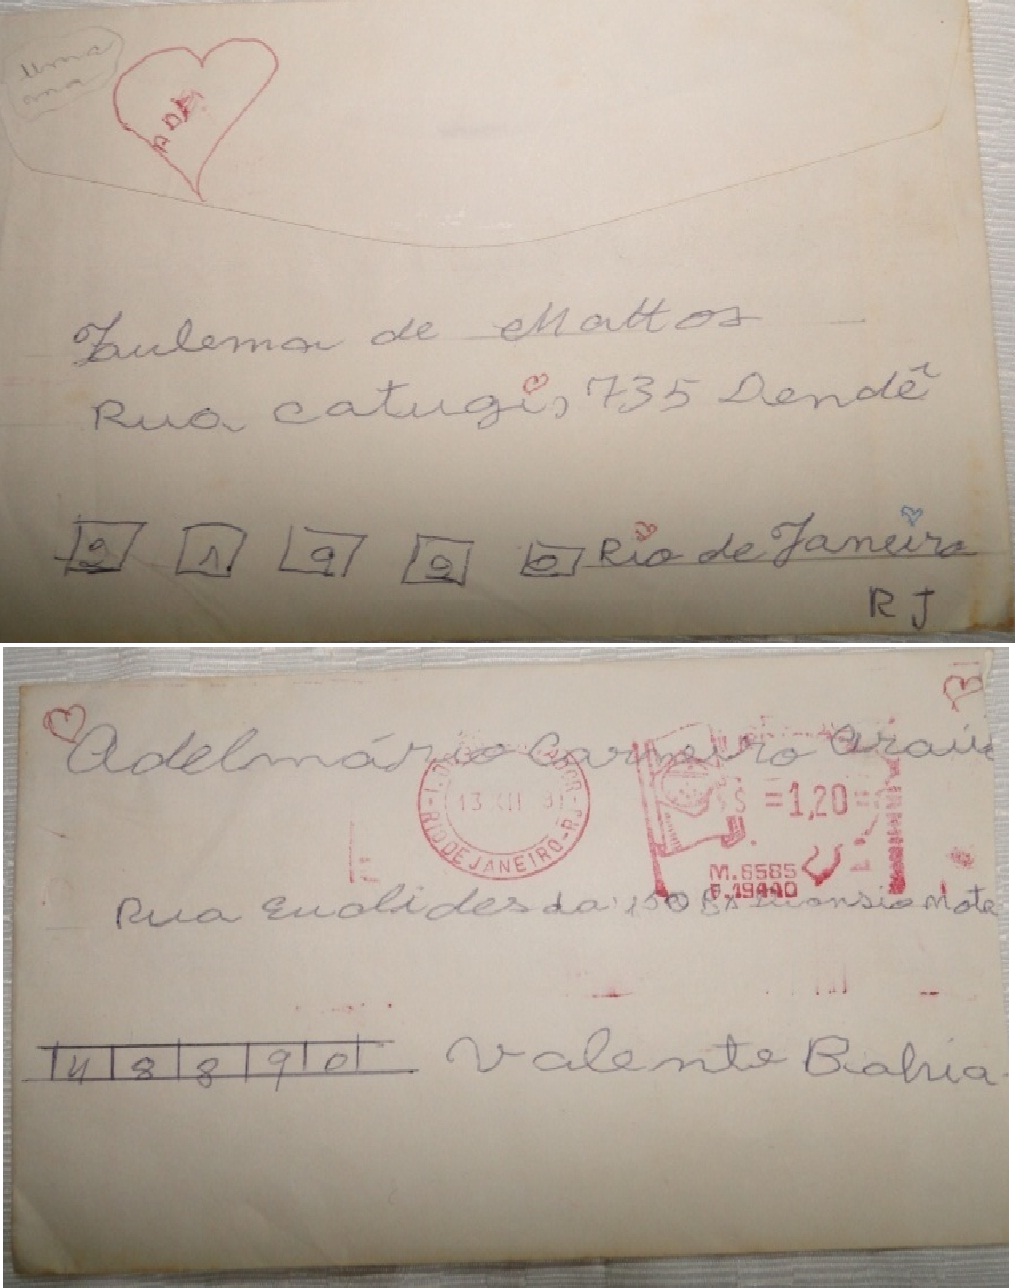 ADA
Zulema de Mattos
Rua Catugi, 735 Dendê
2 1 9 0 0 Rio de Janeiro
RJ
Adelmário Carneiro Araúj
RIO DE JANEIRO-RJ
13 XII
=1,20=
M.6585
P.19440
Rua Euclides da Mota
4 8 8 9 0 Valente Bahia